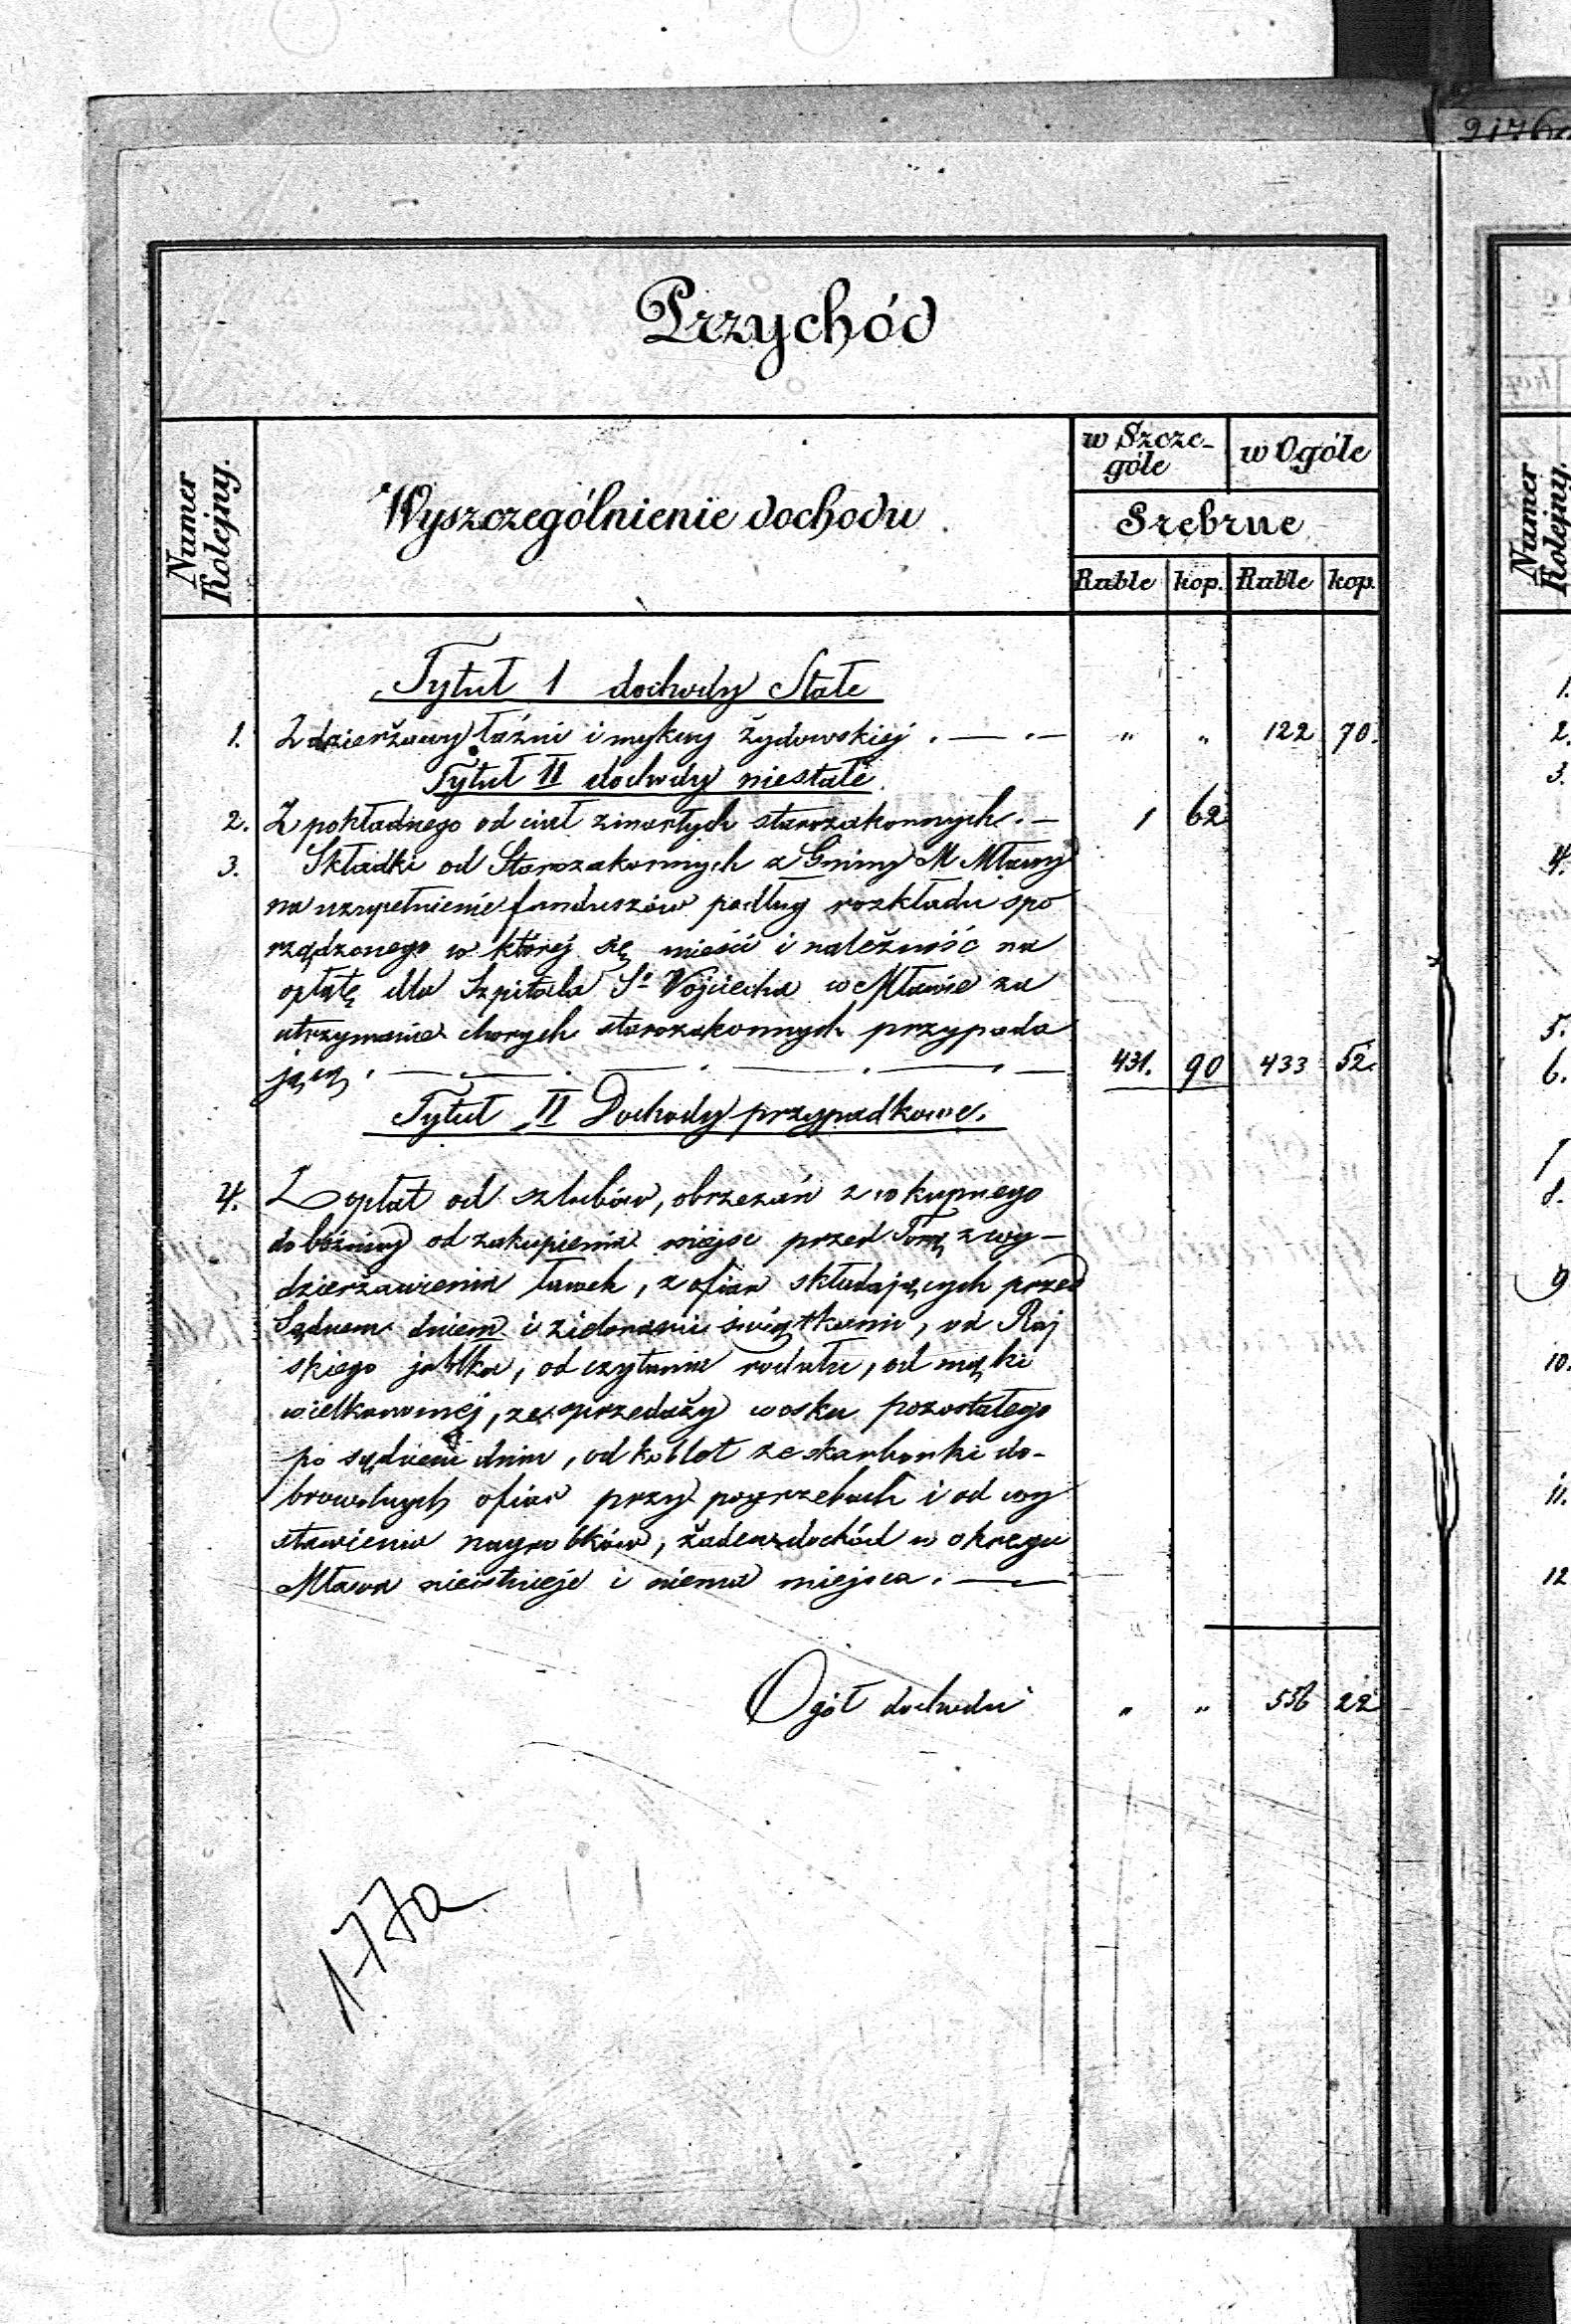 9176
Przychód
Numer
Kolejny.
Wyszczególnienie dochodu
w Szcze-
góle
w Ogóle
Srebrne
Ruble kop. Ruble kop.
Tytuł 1 dochody Stałe
1. Z dzierżawy łaźni i mykwy Żydowskiej . — . — " " 122 70.
Tytuł II dochody niestałe.
2. Z pokładnego od ciał zmarłych starozakonnych. — 1 62
3. Składki od Starozakonnych z Gminy M Mławy
na uzupełnienie funduszów podług rozkładu spo
rządzonego w której się mieści i należność na
opłatę dla Szpitala Sº Wojciecha w Mławie za
utrzymanie chorych starozakonnych przypada
jącą . — . — . — . — 431. 90 433 52.
Tytuł II Dochody przypadkowe.
4. Z opłat od szlubów, obrzezań z wkupnego
do bóżnicy od zakupienia miejsc przed Torą z wy-
dzierżawienia ławek, z ofiar składających przed
Sądnem dniem i zielonemi świątkami, od Raj
skiego jabłka, od czytania rodału, od mąki
wielkanocnej, ze sprzedaży wosku pozostałego
po sądnem dniu, od koblot ze skarbonki do-
browolnych ofiar przy pogrzebach i od wy
stawienia nagrobków, żaden dochód w okręgu
Mława nieistnieje i niema miejsca. —
Ogół dochodu " " 556 22
177a
Numer
Kolejny.
1.
2.
3.
4.
5.
6.
7
8.
9
10.
11.
12